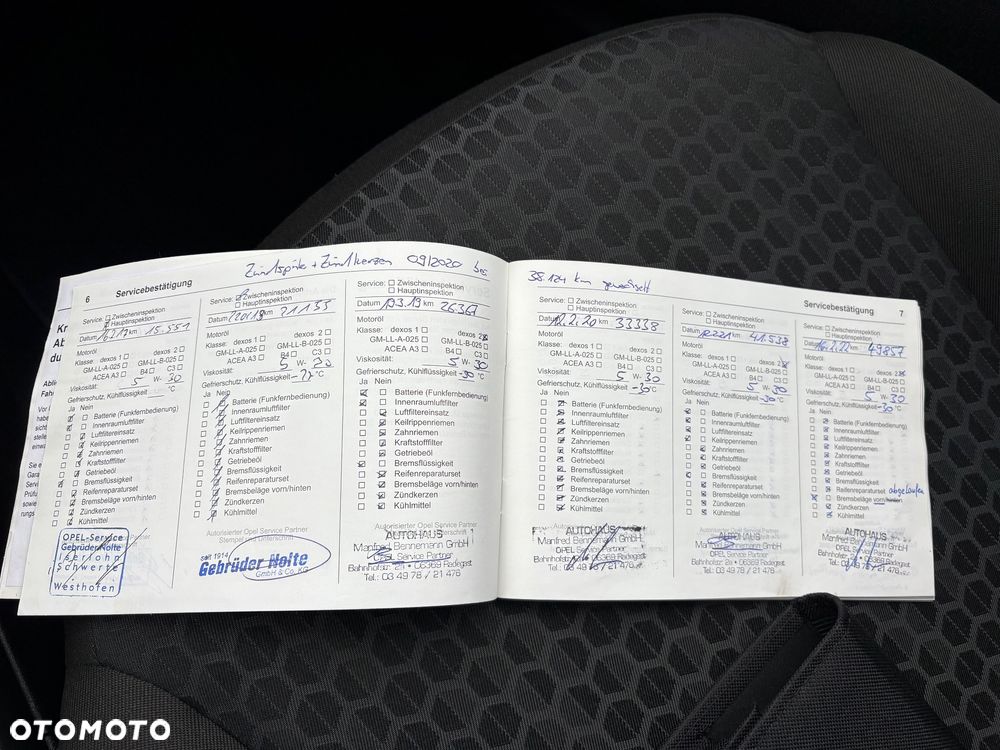 Zündspule + Zündkerzen 09/2020 bei
38.124 km gewechselt
6 Servicebestätigung
Service: Zwischeninspektion
Hauptinspektion
Datum km 15.551
Motoröl
Klasse: dexos 1 dexos 2
GM-LL-A-025 GM-LL-B-025
ACEA A3 B4 C3
Viskosität: 5 W- 30
Gefrierschutz, Kühlflüssigkeit °C
Ja Nein
Batterie (Funkfernbedienung)
Innenraumluftfilter
Luftfiltereinsatz
Keilrippenriemen
Zahnriemen
Kraftstofffilter
Getriebeöl
Bremsflüssigkeit
Reifenreparaturset
Bremsbeläge vorn/hinten
Zündkerzen
Kühlmittel
OPEL-Service
Gebrüder Nolte
Iserlohn
Schwerte
Westhofen
Service: Zwischeninspektion
Hauptinspektion
Datum km 21133
Motoröl
Klasse: dexos 1 dexos 2
GM-LL-A-025 GM-LL-B-025
ACEA A3 B4 C3
Viskosität: 5 W-
Gefrierschutz, Kühlflüssigkeit °C
Ja Nein
Batterie (Funkfernbedienung)
Innenraumluftfilter
Luftfiltereinsatz
Keilrippenriemen
Zahnriemen
Kraftstofffilter
Getriebeöl
Bremsflüssigkeit
Reifenreparaturset
Bremsbeläge vorn/hinten
Zündkerzen
Kühlmittel
Autorisierter Opel Service Partner
Stempel und Unterschrift
seit 1914
Gebrüder Nolte
GmbH & Co. KG
Service: Zwischeninspektion
Hauptinspektion
Datum km 26367
Motoröl
Klasse: dexos 1 dexos 2
GM-LL-A-025 GM-LL-B-025
ACEA A3 B4 C3
Viskosität: 5 W- 30
Gefrierschutz, Kühlflüssigkeit -30 °C
Ja Nein
Batterie (Funkfernbedienung)
Innenraumluftfilter
Luftfiltereinsatz
Keilrippenriemen
Zahnriemen
Kraftstofffilter
Getriebeöl
Bremsflüssigkeit
Reifenreparaturset
Bremsbeläge vorn/hinten
Zündkerzen
Kühlmittel
Autorisierter Opel Service Partner
AUTOHAUS
Manfred Bennemann GmbH
OPEL Service Partner
Bahnhofstr. 2a • 06369 Radegast
Tel.: 03 49 78 / 21 476
Servicebestätigung 7
Service: Zwischeninspektion
Hauptinspektion
Datum 12.2.20 km 33338
Motoröl
Klasse: dexos 1 dexos 2
GM-LL-A-025 GM-LL-B-025
ACEA A3 B4 C3
Viskosität: 5 W- 30
Gefrierschutz, Kühlflüssigkeit -30 °C
Ja Nein
Batterie (Funkfernbedienung)
Innenraumluftfilter
Luftfiltereinsatz
Keilrippenriemen
Zahnriemen
Kraftstofffilter
Getriebeöl
Bremsflüssigkeit
Reifenreparaturset
Bremsbeläge vorn/hinten
Zündkerzen
Kühlmittel
AUTOHAUS
Manfred Bennemann GmbH
OPEL Service Partner
Bahnhofstr. 2a • 06369 Radegast
Tel.: 03 49 78 / 21 476
Service: Zwischeninspektion
Hauptinspektion
Datum km 41.538
Motoröl
Klasse: dexos 1 dexos 2
GM-LL-A-025 GM-LL-B-025
ACEA A3 B4 C3
Viskosität: 5 W- 30
Gefrierschutz, Kühlflüssigkeit -30 °C
Ja Nein
Batterie (Funkfernbedienung)
Innenraumluftfilter
Luftfiltereinsatz
Keilrippenriemen
Zahnriemen
Kraftstofffilter
Getriebeöl
Bremsflüssigkeit
Reifenreparaturset
Bremsbeläge vorn/hinten
Zündkerzen
Kühlmittel
AUTOHAUS
Manfred Bennemann GmbH
OPEL Service Partner
Bahnhofstr. 2a • 06369 Radegast
Tel.: 03 49 78 / 21 476
Service: Zwischeninspektion
Hauptinspektion
Datum km 49857
Motoröl
Klasse: dexos 1 dexos 2
GM-LL-A-025 GM-LL-B-025
ACEA A3 B4 C3
Viskosität: 5 W- 30
Gefrierschutz, Kühlflüssigkeit -30 °C
Ja Nein
Batterie (Funkfernbedienung)
Innenraumluftfilter
Luftfiltereinsatz
Keilrippenriemen
Zahnriemen
Kraftstofffilter
Getriebeöl
Bremsflüssigkeit
Reifenreparaturset abgelaufen
Bremsbeläge vorn/hinten
Zündkerzen
Kühlmittel
AUTOHAUS
Manfred Bennemann GmbH
OPEL Service Partner
Bahnhofstr. 2a • 06369 Radegast
Tel.: 03 49 78 / 21 476
OTOMOTO